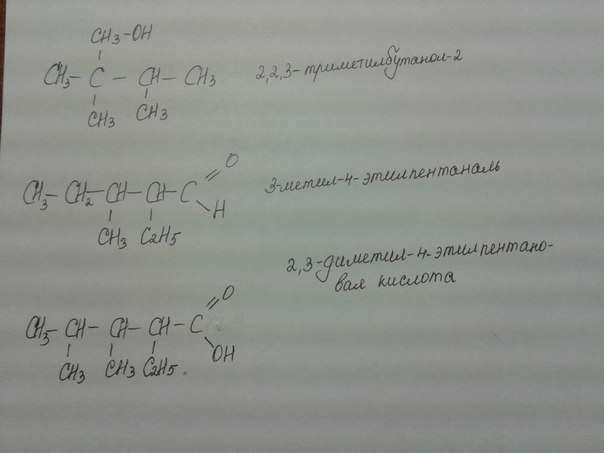 CH3-OH
CH3- C - CH - CH3
CH3 CH3
2,2,3-триметилбутанол-2
CH3- CH2- CH - CH - C
O
H
CH3 C2H5
3-метил-4-этилпентаналь
2,3-диметил-4-этилпентано-
вая кислота
CH3- CH - CH - CH - C
O
OH
CH3 CH3 C2H5.